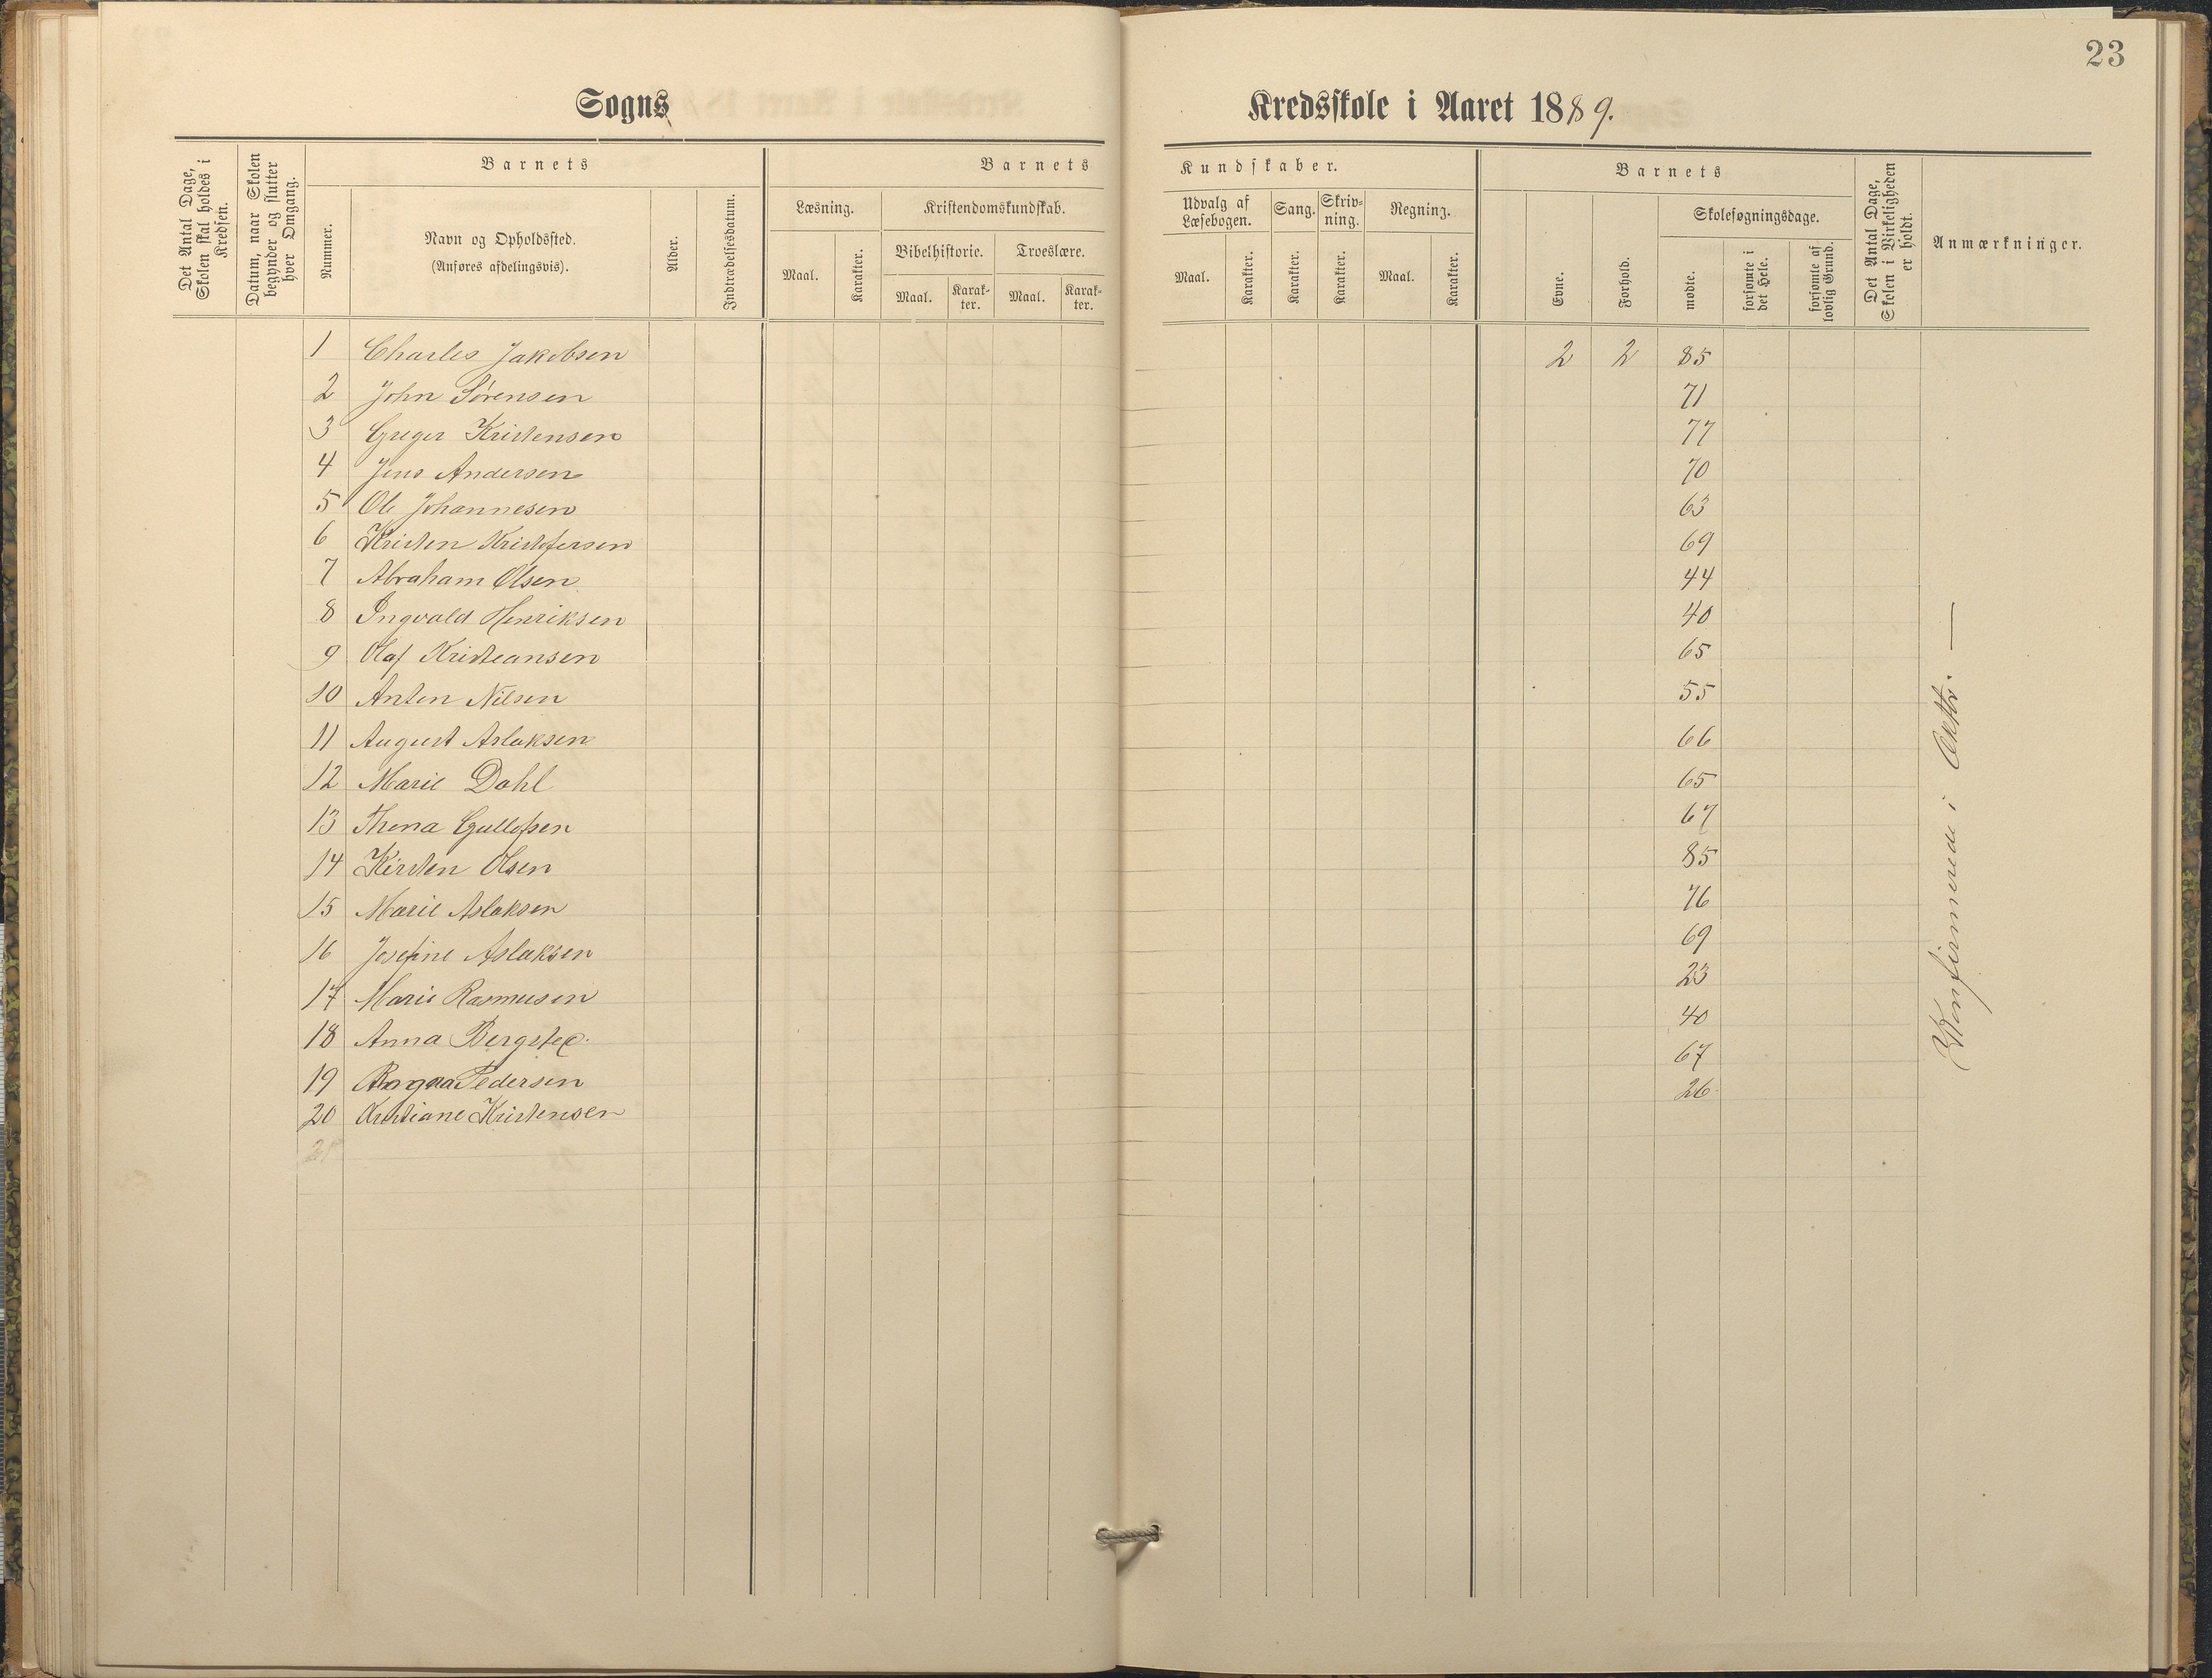 23
Sogns Kredsskole i Aaret 1889.
Det Antal Dage, Skolen skal holdes i Kredsen.
Datum, naar Skolen begynder og slutter hver Omgang.
Barnets
Nummer.
Navn og Opholdssted.
(Anføres afdelingsvis).
Alder.
Indtrædelsesdatum.
Barnets Kundskaber.
Læsning.
Maal.
Karakter.
Kristendomskundskab.
Bibelhistorie.
Maal.
Karak-
ter.
Troeslære.
Maal.
Karak-
ter.
Udvalg af
Læsebogen.
Maal.
Karakter.
Sang.
Karakter.
Skriv-
ning.
Karakter.
Regning.
Maal.
Karakter.
Barnets
Evne.
Forhold.
Skolesøgningsdage.
mødte.
forsømte i
det Hele.
forsømte af
lovlig Grund.
Det Antal Dage,
Skolen i Virkeligheden
er holdt.
Anmærkninger.
1 Charles Jakobsen 2 2 85
2 John Sørensen 71
3 Greger Kristensen 77
4 Jens Andersen 70
5 Ole Johannesen 63
6 Kristen Kristofersen 69
7 Abraham Olsen 44
8 Ingvald Henriksen 40
9 Olaf Kristeansen 65
10 Anton Nilsen 55
11 August Aslaksen 66
12 Marie Dahl 65
13 Thena Gullofsen 67
14 Kirsten Olsen 85
15 Marie Aslaksen 76
16 Josefine Aslaksen 69
17 Marie Rasmusen 23
18 Anna 40
19 Ragna Pedersen 67
20 Kristiane Kristensen 26
21
Konfirmerede i Oktbr. —